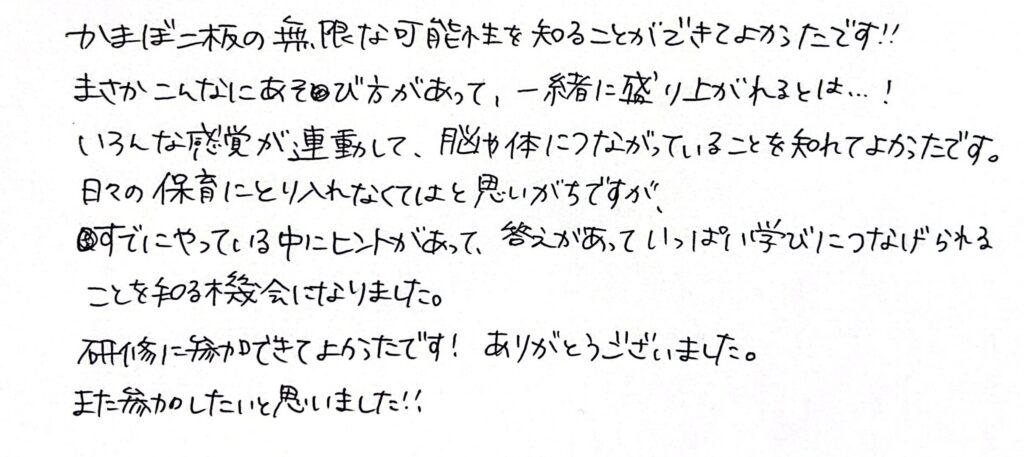 かまぼこ板の無限な可能性を知ることができてよかったです!!
まさかこんなにあそび方があって、一緒に盛り上がれるとは…！
いろんな感覚が連動して、脳や体につながっていることを知れてよかったです。
日々の保育にとり入れなくてはと思いがちですが、
すでにやっている中にヒントがあって、答えがあっていっぱい学びにつなげられる
ことを知る機会になりました。
研修に参加できてよかったです！ありがとうございました。
また参加したいと思いました!!